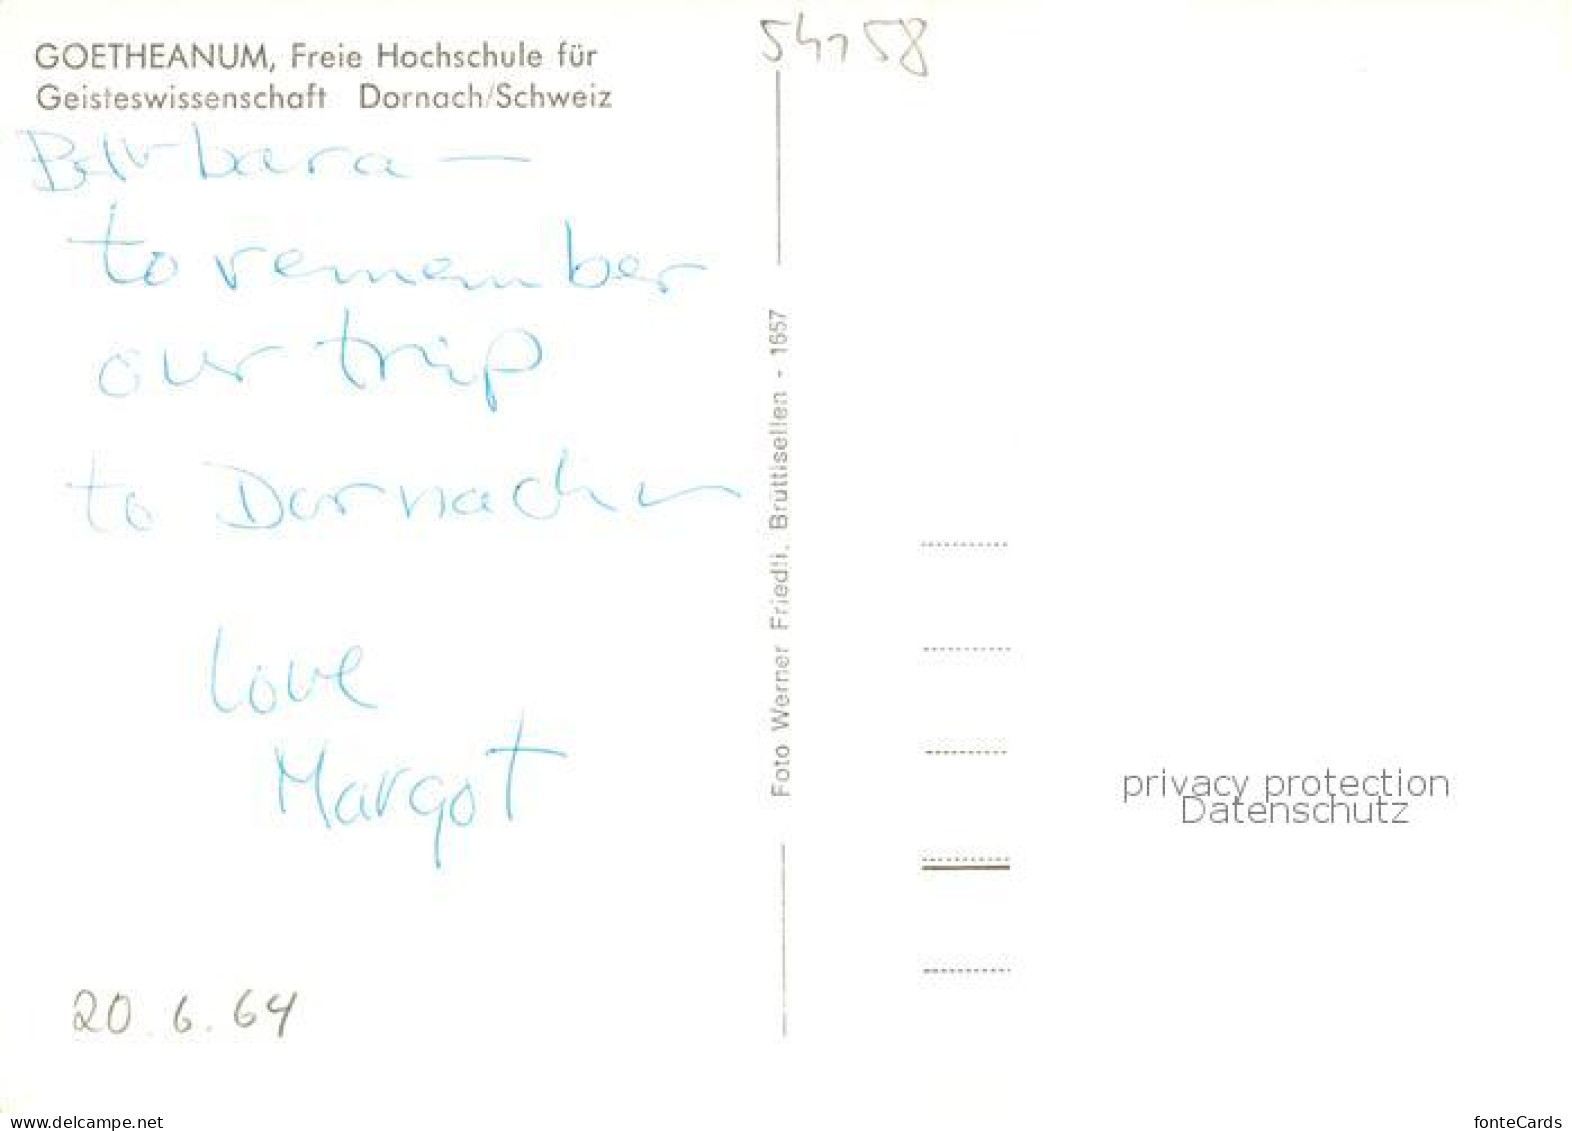 GOETHEANUM, Freie Hochschule für
Geisteswissenschaft Dornach/Schweiz
54158
Barbara —
to remember
our trip
to Dornach —
love
Margot
20.6.64
Foto Werner Friedli, Brüttisellen - 1667
privacy protection
Datenschutz
www.delcampe.net
fonteCards